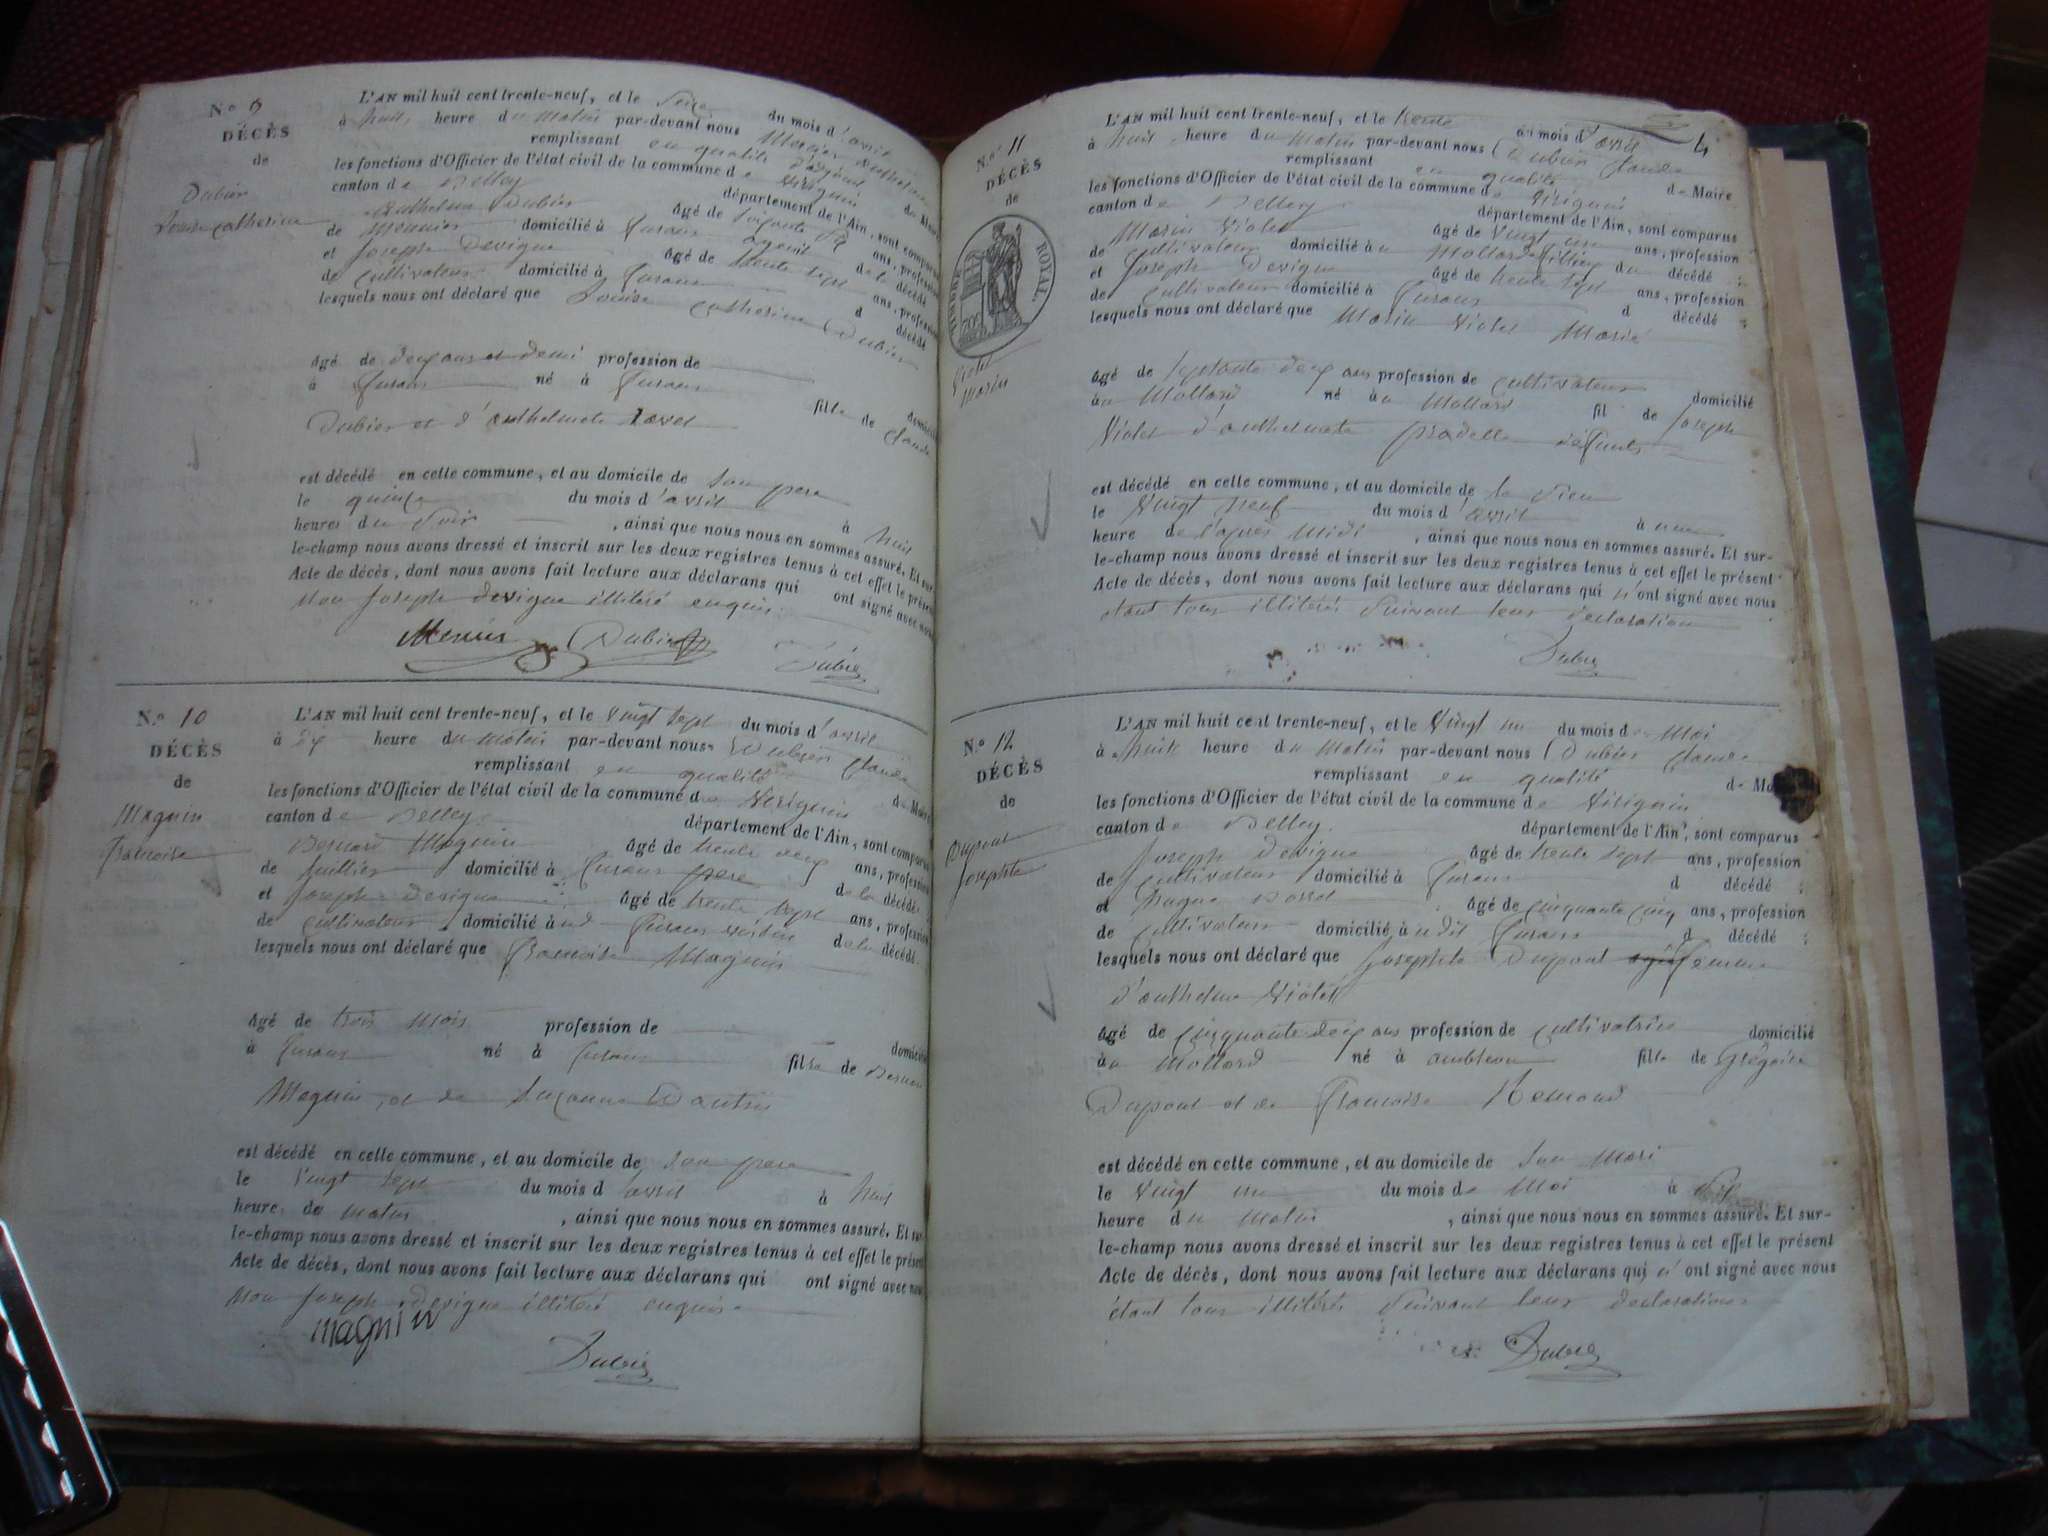 N.o 9
DÉCÈS
de
Dubier
Louise Catherine
L'AN mil huit cent trente-neuf, et le Seize du mois d'avril
à huit heure du matin par-devant nous Mercier Anthelme
remplissant en qualité d'adjoint
les fonctions d'Officier de l'état civil de la commune de Virignin
canton de Belley département de l'Ain, sont comparus
Anthelme Dubier âgé de Soixante ans, profession
de Meunier domicilié à Cusans de la décédé
et Joseph Devigne âgé de trente sept ans, profession
de Cultivateur domicilié à Cusans d décédé
lesquels nous ont déclaré que Louise Catherine Dubier
âgé de deux ans et demi profession de
à Cusans né à Cusans fille de Claude
Dubier et d'anthelmete
est décédé en cette commune, et au domicile de Son pere
le quinze du mois d'avril à huit
heures du Soir, ainsi que nous nous en sommes assuré. Et sur-
le-champ nous avons dressé et inscrit sur les deux registres tenus à cet effet le présent
Acte de décès, dont nous avons fait lecture aux déclarans qui ont signé avec nous
non Joseph devigne illiteré enquis
Dubier
Dubier
N.o 10
DÉCÈS
de
Magnin
Francoise
L'AN mil huit cent trente-neuf, et le Vingt sept du mois d'avril
à Dix heure du matin par-devant nous Dubier Claude
remplissant en qualité de Maire
les fonctions d'Officier de l'état civil de la commune de Virignin
canton de Belley département de l'Ain, sont comparus
Bernard Magnin âgé de trente deux ans, profession
de domicilié à Cusans pere de la décédé
et Joseph devigne âgé de trente sept ans, profession
de Cultivateur domicilié à ud Cusans voisin de la décédé
lesquels nous ont déclaré que Francoise Magnin
âgé de trois mois profession de domicilié
à Cusans né à Cusans fille de Bernard
Magnin, et de Suzanne
est décédé en cette commune, et au domicile de Son pere
le Vingt sept du mois d'avril à huit
heure du matin, ainsi que nous nous en sommes assuré. Et sur-
le-champ nous avons dressé et inscrit sur les deux registres tenus à cet effet le présent
Acte de décès, dont nous avons fait lecture aux déclarans qui ont signé avec nous
non Joseph devigne illiteré enquis
magnin
Dubier
4
N.o 11
DÉCÈS
de
TIMBRE ROYAL.
Violet
Marin
L'AN mil huit cent trente-neuf, et le trente du mois d'avril
à huit heure du matin par-devant nous Dubier Claude
remplissant en qualité de Maire
les fonctions d'Officier de l'état civil de la commune de Virignin
canton de Belley département de l'Ain, sont comparus
Marin Violet âgé de Vingt un ans, profession
de Cultivateur domicilié à u Mollard du décédé ;
et Joseph Devigne âgé de trente sept ans, profession
de Cultivateur domicilié à Cusans d décédé ;
lesquels nous ont déclaré que Marin Violet Marié
âgé de Septante deux ans profession de Cultivateur domicilié
à u Mollard né à u Mollard fil de Joseph
Violet d'anthelmete défunts
est décédé en cette commune, et au domicile de le Sien
le Vingt neuf du mois d'avril à une
heure de l'après Midi, ainsi que nous nous en sommes assuré. Et sur-
le-champ nous avons dressé et inscrit sur les deux registres tenus à cet effet le présent
Acte de décès, dont nous avons fait lecture aux déclarans qui n'ont signé avec nous
étant tous illiterés Suivant leur declaration
Dubier
N.o 12
DÉCÈS
de
Dupont
Josephte
L'AN mil huit cent trente-neuf, et le Vingt un du mois de Mai
à huit heure du Matin par-devant nous Dubier Claude
remplissant en qualité de Maire
les fonctions d'Officier de l'état civil de la commune de Virignin
canton de Belley département de l'Ain, sont comparus
Joseph devigne âgé de trente sept ans, profession
de Cultivateur domicilié à Cusans d décédé ;
et âgé de cinquante cinq ans, profession
de Cultivateur domicilié à u dit Cusans d décédé ;
lesquels nous ont déclaré que Josephte Dupont femme
d'anthelme Violet
âgé de Cinquante deux ans profession de Cultivatrice domicilié
à u Mollard né à fille de Grégoire
Dupont et de Francoise
est décédé en cette commune, et au domicile de Son Mari
le Vingt un du mois de Mai à
heure du matin, ainsi que nous nous en sommes assuré. Et sur-
le-champ nous avons dressé et inscrit sur les deux registres tenus à cet effet le présent
Acte de décès, dont nous avons fait lecture aux déclarans qui n'ont signé avec nous
étant tous illiterés Suivant leur declaration
Dubier